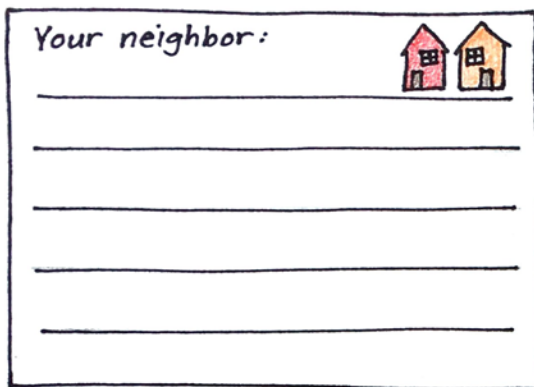 Your neighbor: